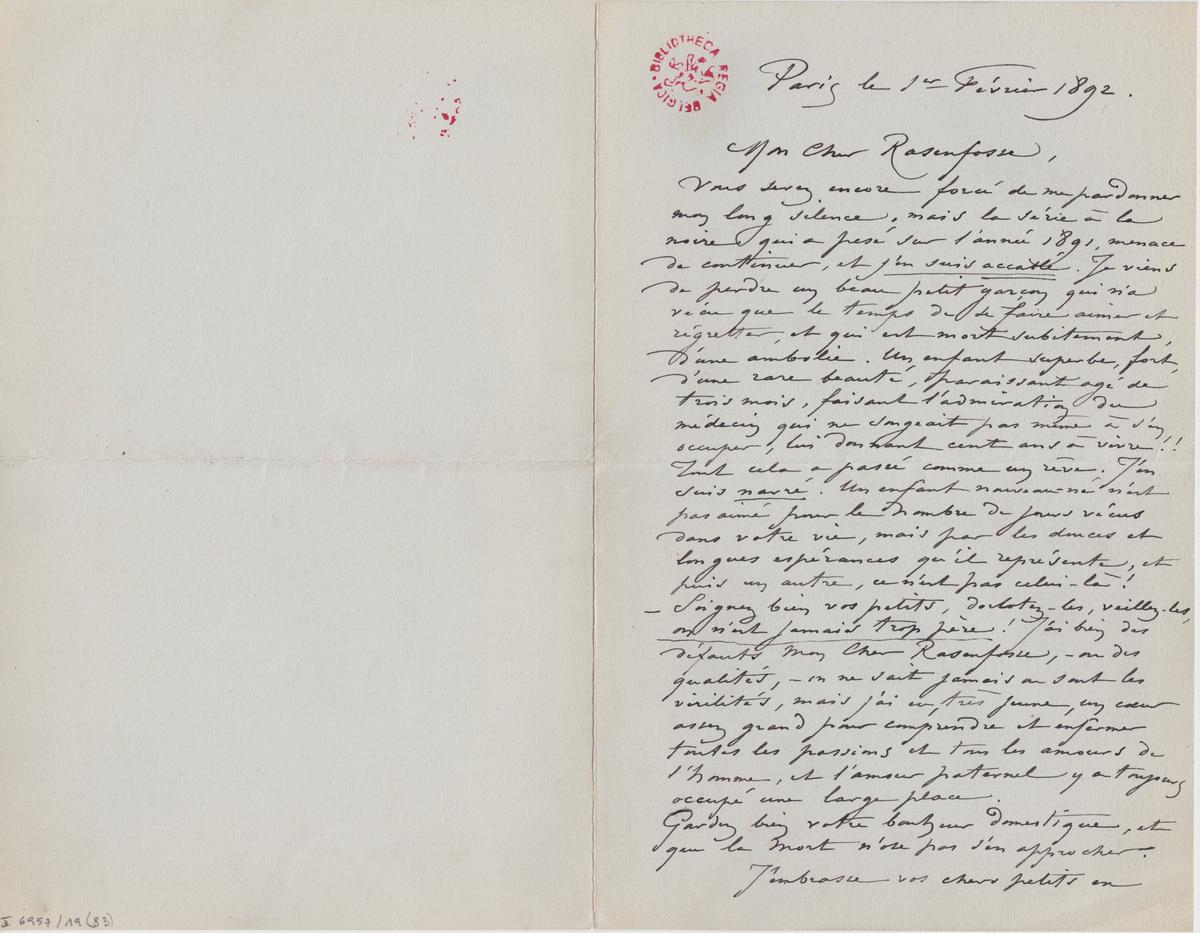 BIBLIOTHECA REGIA BELGICA
Paris le 1er Février 1892.
Mon Cher Rasenfosse,
Vous serez encore forcé de me pardonner
mon long silence, mais la série à la
noire qui a pesé sur l'année 1891, menace
de continuer, et j'en suis accablé. Je viens
de perdre un beau petit garçon qui n'a
vécu que le temps de se faire aimer et
regretter, et qui est mort subitement,
d'une ambolie. Un enfant superbe, fort,
d'une rare beauté, paraissant agé de
trois mois, faisant l'admiration du
médecin qui ne songeait pas même à s'en
occuper, lui donnant cent ans à vivre!!
Tout cela a passé comme un rêve. J'en
suis navré. Un enfant nouveau-né n'est
pas aimé pour le nombre de jours vécus
dans votre vie, mais par les douces et
longues espérances qu'il représente, et
puis un autre, ce n'est pas celui-là!
– Soignez bien vos petits, dorlotez-les, veillez-les,
on n'est jamais trop père! J'ai bien des
défauts Mon Cher Rasenfosse, – ou des
qualités, – on ne sait jamais ou sont les
virilités, mais j'ai eu, très jeune, un cœur
assez grand pour comprendre et enfermer
toutes les passions et tous les amours de
l'homme, et l'amour paternel y a toujours
occupé une large place.
Gardez bien votre bonheur domestique, et
que la Mort n'ose pas s'en approcher.
J'embrasse vos chers petits en
II 6957/19 (83)